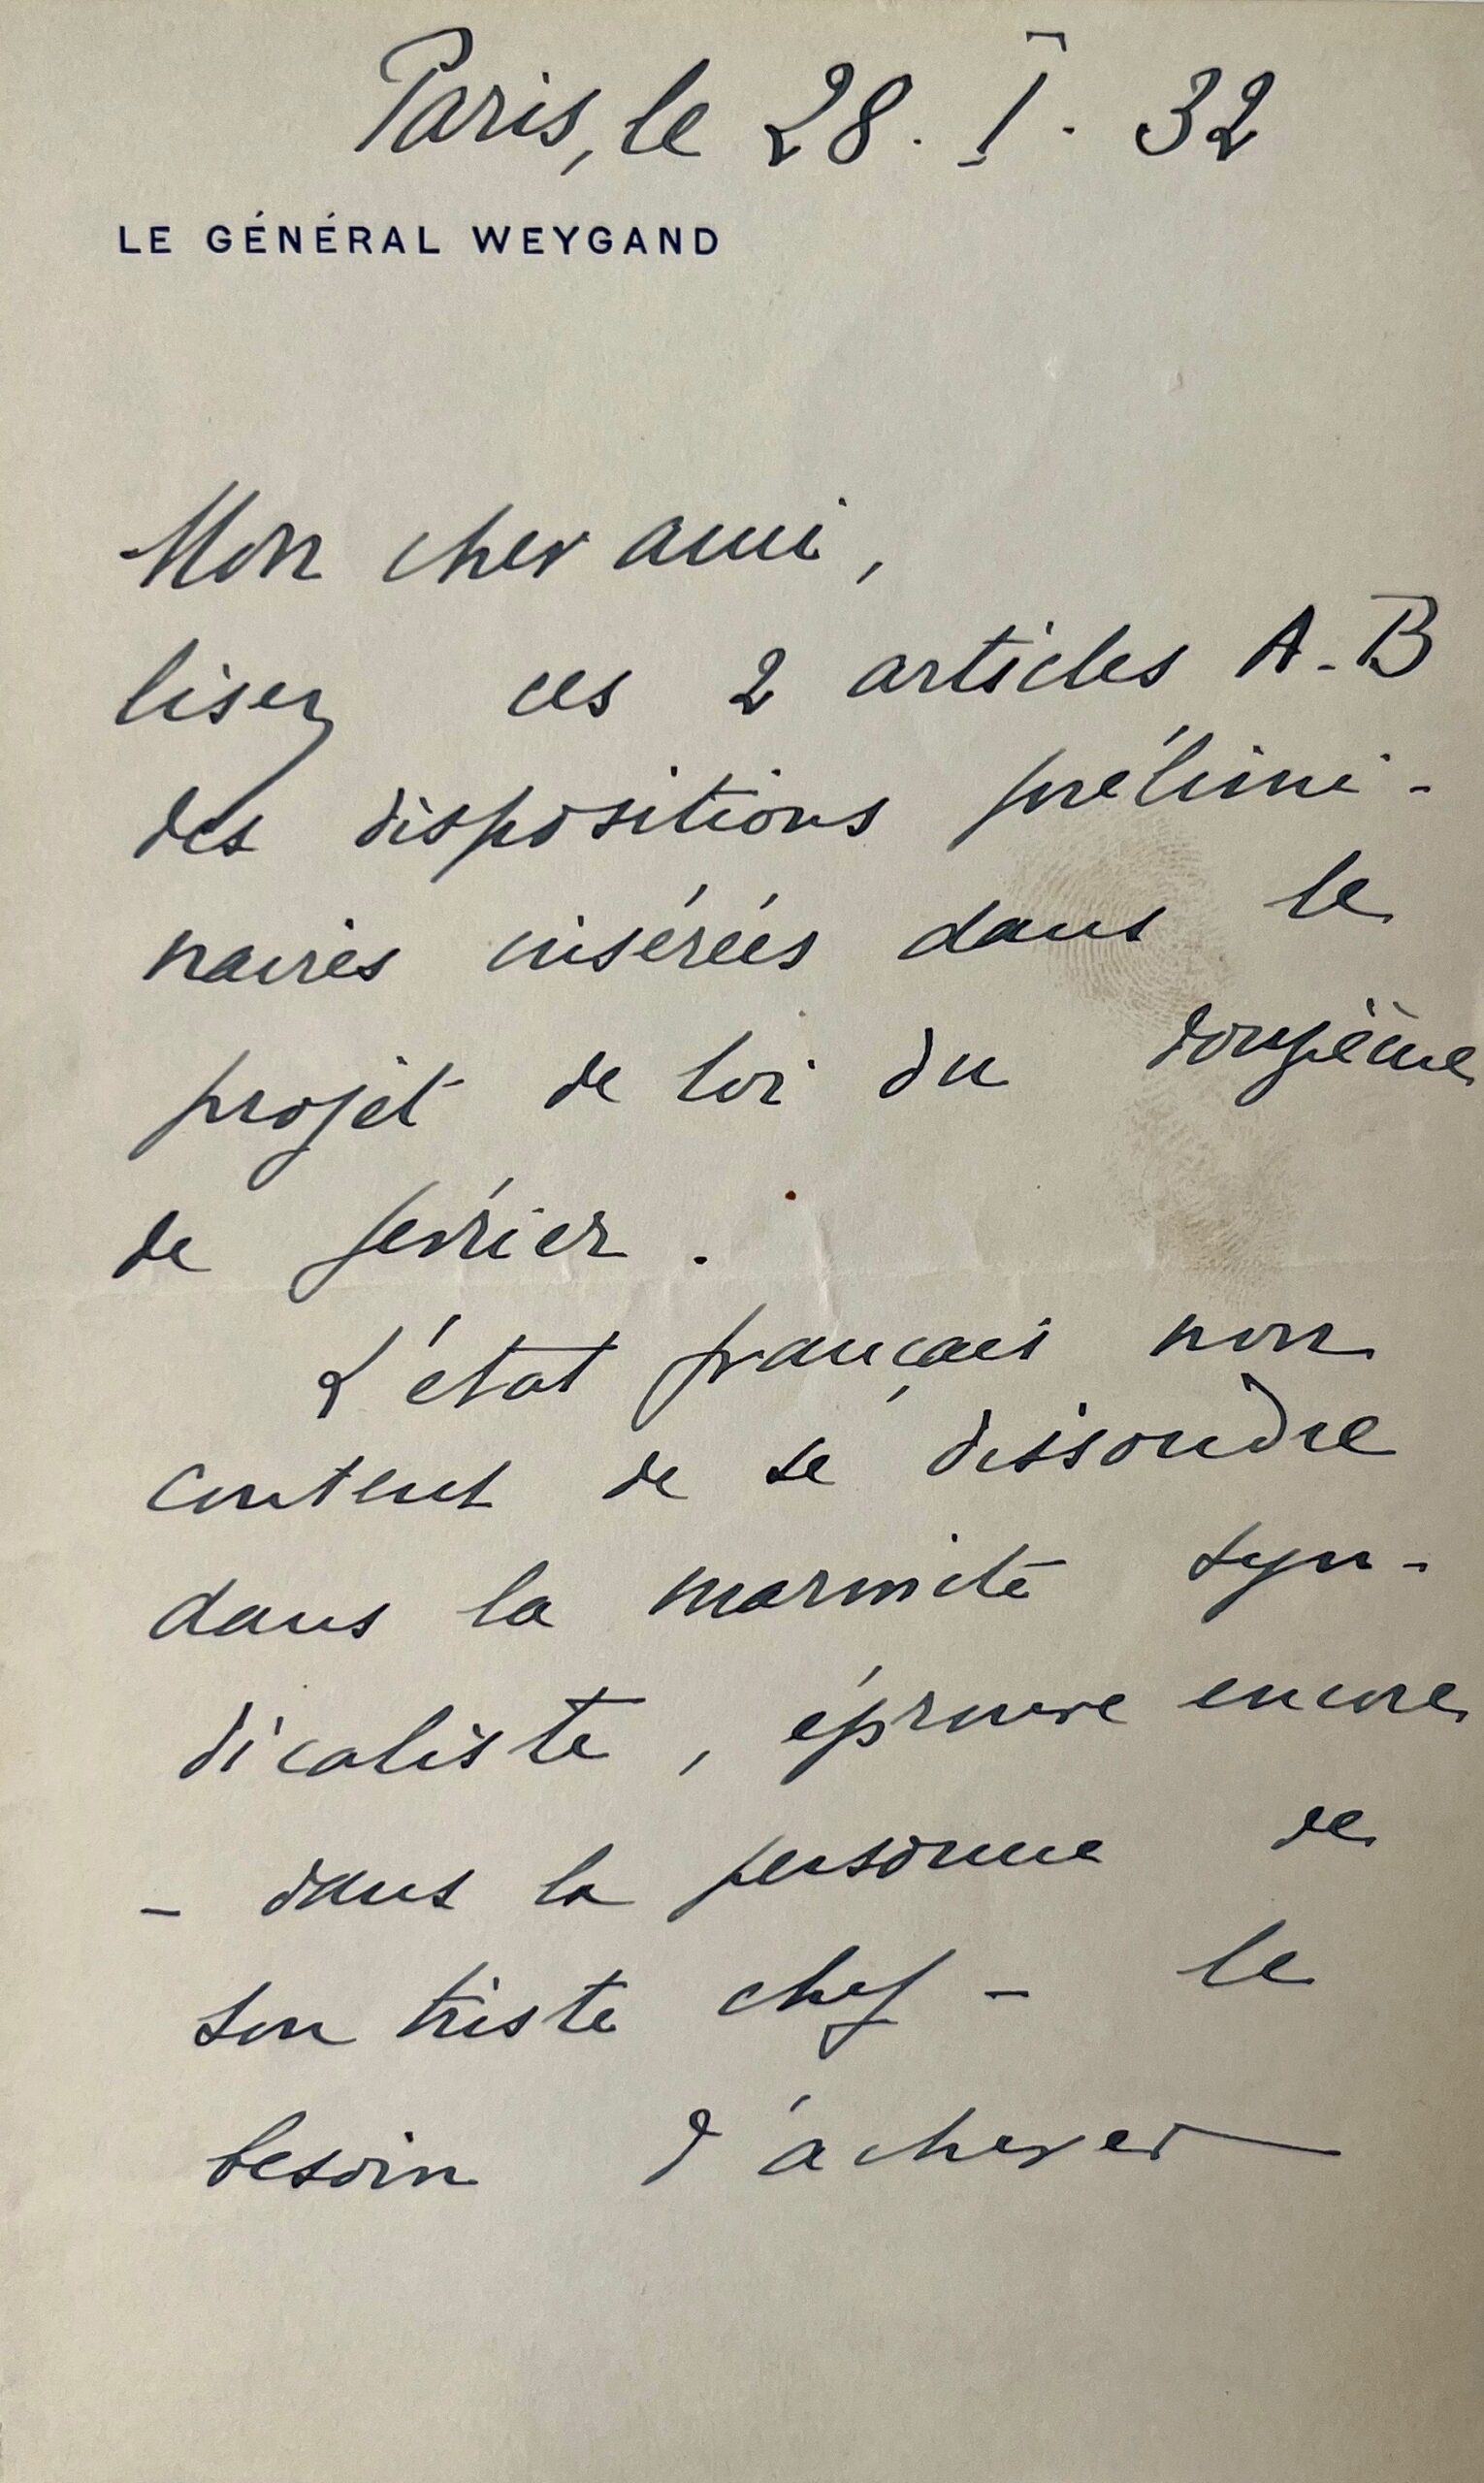 Paris, le 28. I. 32
LE GÉNÉRAL WEYGAND
Mon cher ami,
lisez ces 2 articles A-B
des dispositions prélimi-
naires insérées dans le
projet de loi du douzième
de février.
L'état français non
content de se dissoudre
dans la marmite syn-
dicaliste, éprouve encore
- dans la personne de
son triste chef - le
besoin d'achever